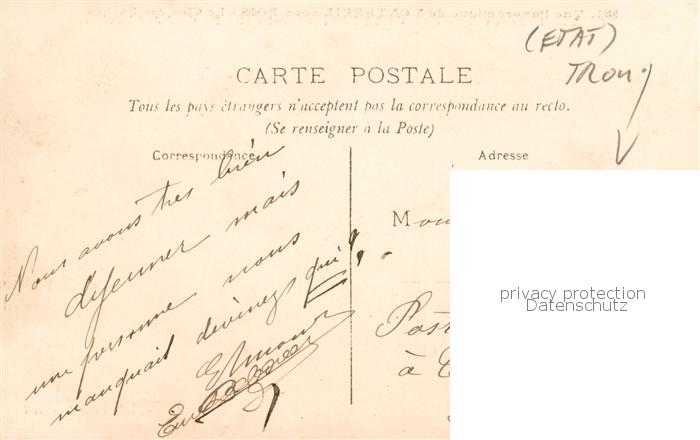 Vue Panoramique de MONTREUIL sous BOIS
(ETAT)
TROU
CARTE POSTALE
Tous les pays étrangers n'acceptent pas la correspondance au recto.
(Se renseigner à la Poste)
Correspondance
Adresse
Nous avons très bien
déjeuner mais
une personne nous
manquait devinez qui ?
M
privacy protection
Datenschutz
à